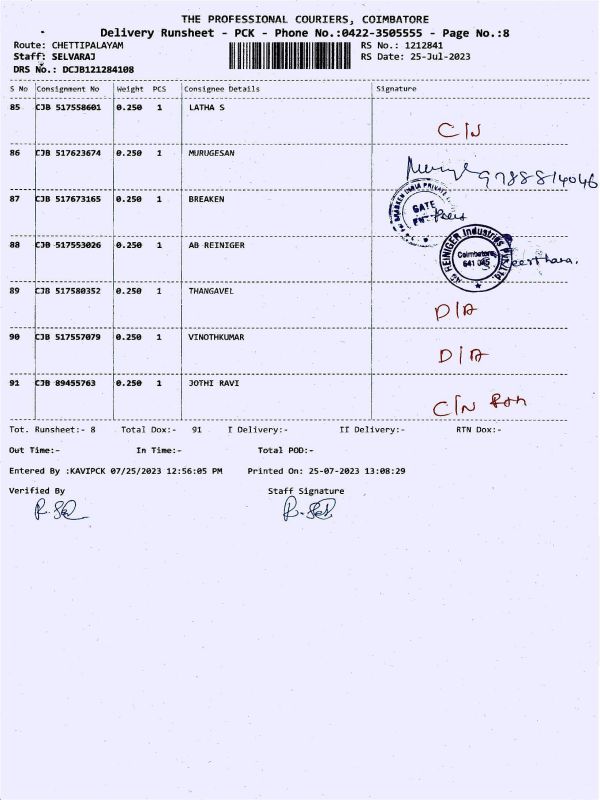 THE PROFESSIONAL COURIERS, COIMBATORE
Delivery Runsheet - PCK - Phone No.:0422-3505555 - Page No.:8
Route: CHETTIPALAYAM RS No.: 1212841
Staff: SELVARAJ RS Date: 25-Jul-2023
DRS No.: DCJB121284108
S No Consignment No Weight PCS Consignee Details Signature
85 CJB 517558601 0.250 1 LATHA S
C/N
86 CJB 517623674 0.250 1 MURUGESAN
9788814046
87 CJB 517673165 0.250 1 BREAKEN
BREAKEN INDIA PRIVATE
GATE
88 CJB 517553026 0.250 1 AB REINIGER
REINIGER Industries
Coimbatore
641 045
89 CJB 517580352 0.250 1 THANGAVEL
D/A
90 CJB 517557079 0.250 1 VINOTHKUMAR
D/A
91 CJB 89455763 0.250 1 JOTHI RAVI
C/N
Tot. Runsheet:- 8 Total Dox:- 91 I Delivery:- II Delivery:- RTN Dox:-
Out Time:- In Time:- Total POD:-
Entered By :KAVIPCK 07/25/2023 12:56:05 PM Printed On: 25-07-2023 13:08:29
Verified By Staff Signature